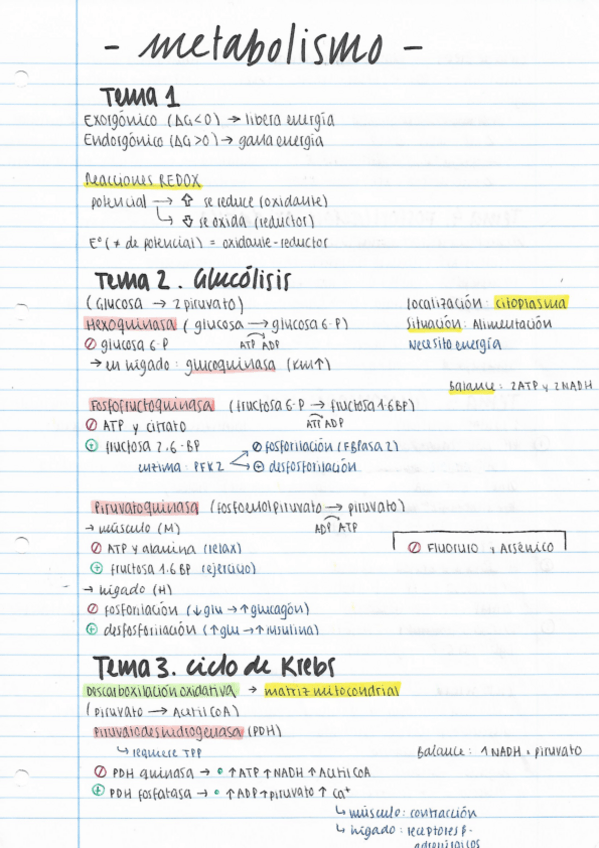 - metabolismo -
Tema 1
Exorgónico (ΔG<0) → libera energía
Endorgónico (ΔG>0) → gana energía
Reacciones REDOX
potencial → ⇧ se reduce (oxidante)
↳ ⇩ se oxida (reductor)
E° (≠ de potencial) = oxidante-reductor
Tema 2. Glucólisis
(Glucosa → 2 piruvato) localización: citoplasma
Hexoquinasa (glucosa → glucosa 6-P) Situación: Alimentación
⊘ glucosa 6-P ATP ADP Necesito energía
→ en hígado: glucoquinasa (Km↑)
Balance: 2ATP y 2NADH
Fosfofructoquinasa (fructosa 6-P → fructosa 1-6BP)
⊘ ATP y citrato ATP ADP
⊕ fructosa 2,6-BP ⊘ fosforilación (FBPasa 2)
enzima: PFK2 ⊖ desfosforilación
Piruvatoquinasa (fosfoenolpiruvato → piruvato)
→ músculo (M) ADP ATP
⊘ ATP y alanina (relax) ⊘ Fluoruro y Arsénico
⊕ fructosa 1-6BP (ejercicio)
→ hígado (H)
⊘ fosforilación (↓glu → ↑glucagón)
⊕ desfosforilación (↑glu → ↑insulina)
Tema 3. ciclo de Krebs
Descarboxilación oxidativa → matriz mitocondrial
(piruvato → Acetil CoA)
Piruvatodeshidrogenasa (PDH)
↳ requiere TPP Balance: 1 NADH × piruvato
⊘ PDH quinasa → • ↑ATP ↑NADH ↑Acetil CoA
⊕ PDH fosfatasa → • ↑ADP ↑piruvato ↑Ca⁺
↳ músculo: contracción
↳ hígado: receptores β-
adrenérgicos